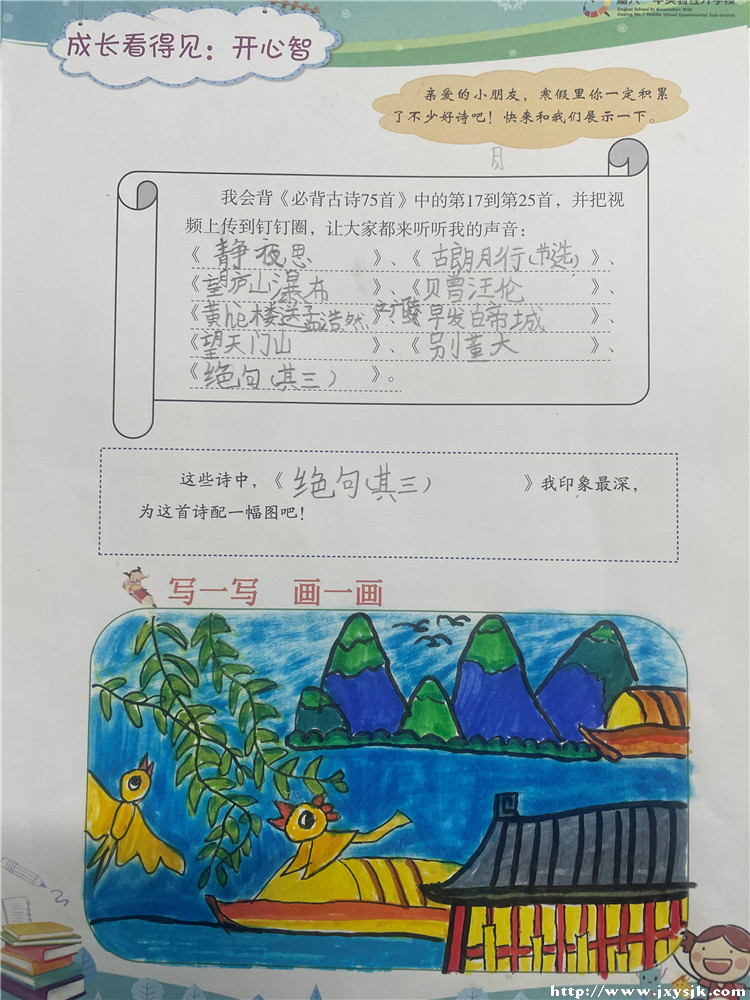 Jingkai School In Association With
Jiaxing No.1 Middle School Experimental Sub-branch
成长看得见：开心智
亲爱的小朋友，寒假里你一定积累
了不少好诗吧！快来和我们展示一下。
月
我会背《必背古诗75首》中的第17到第25首，并把视
频上传到钉钉圈，让大家都来听听我的声音：
《静夜思》、《古朗月行（节选）》、
《望庐山瀑布》、《贝曾汪伦》、
《黄hè楼送孟浩然之广陵》、《早发白帝城》、
《望天门山》、《别董大》、
《绝句（其三）》。
这些诗中，《绝句（其三）》我印象最深，
为这首诗配一幅图吧！
写一写 画一画
http://www.jxysjk.com